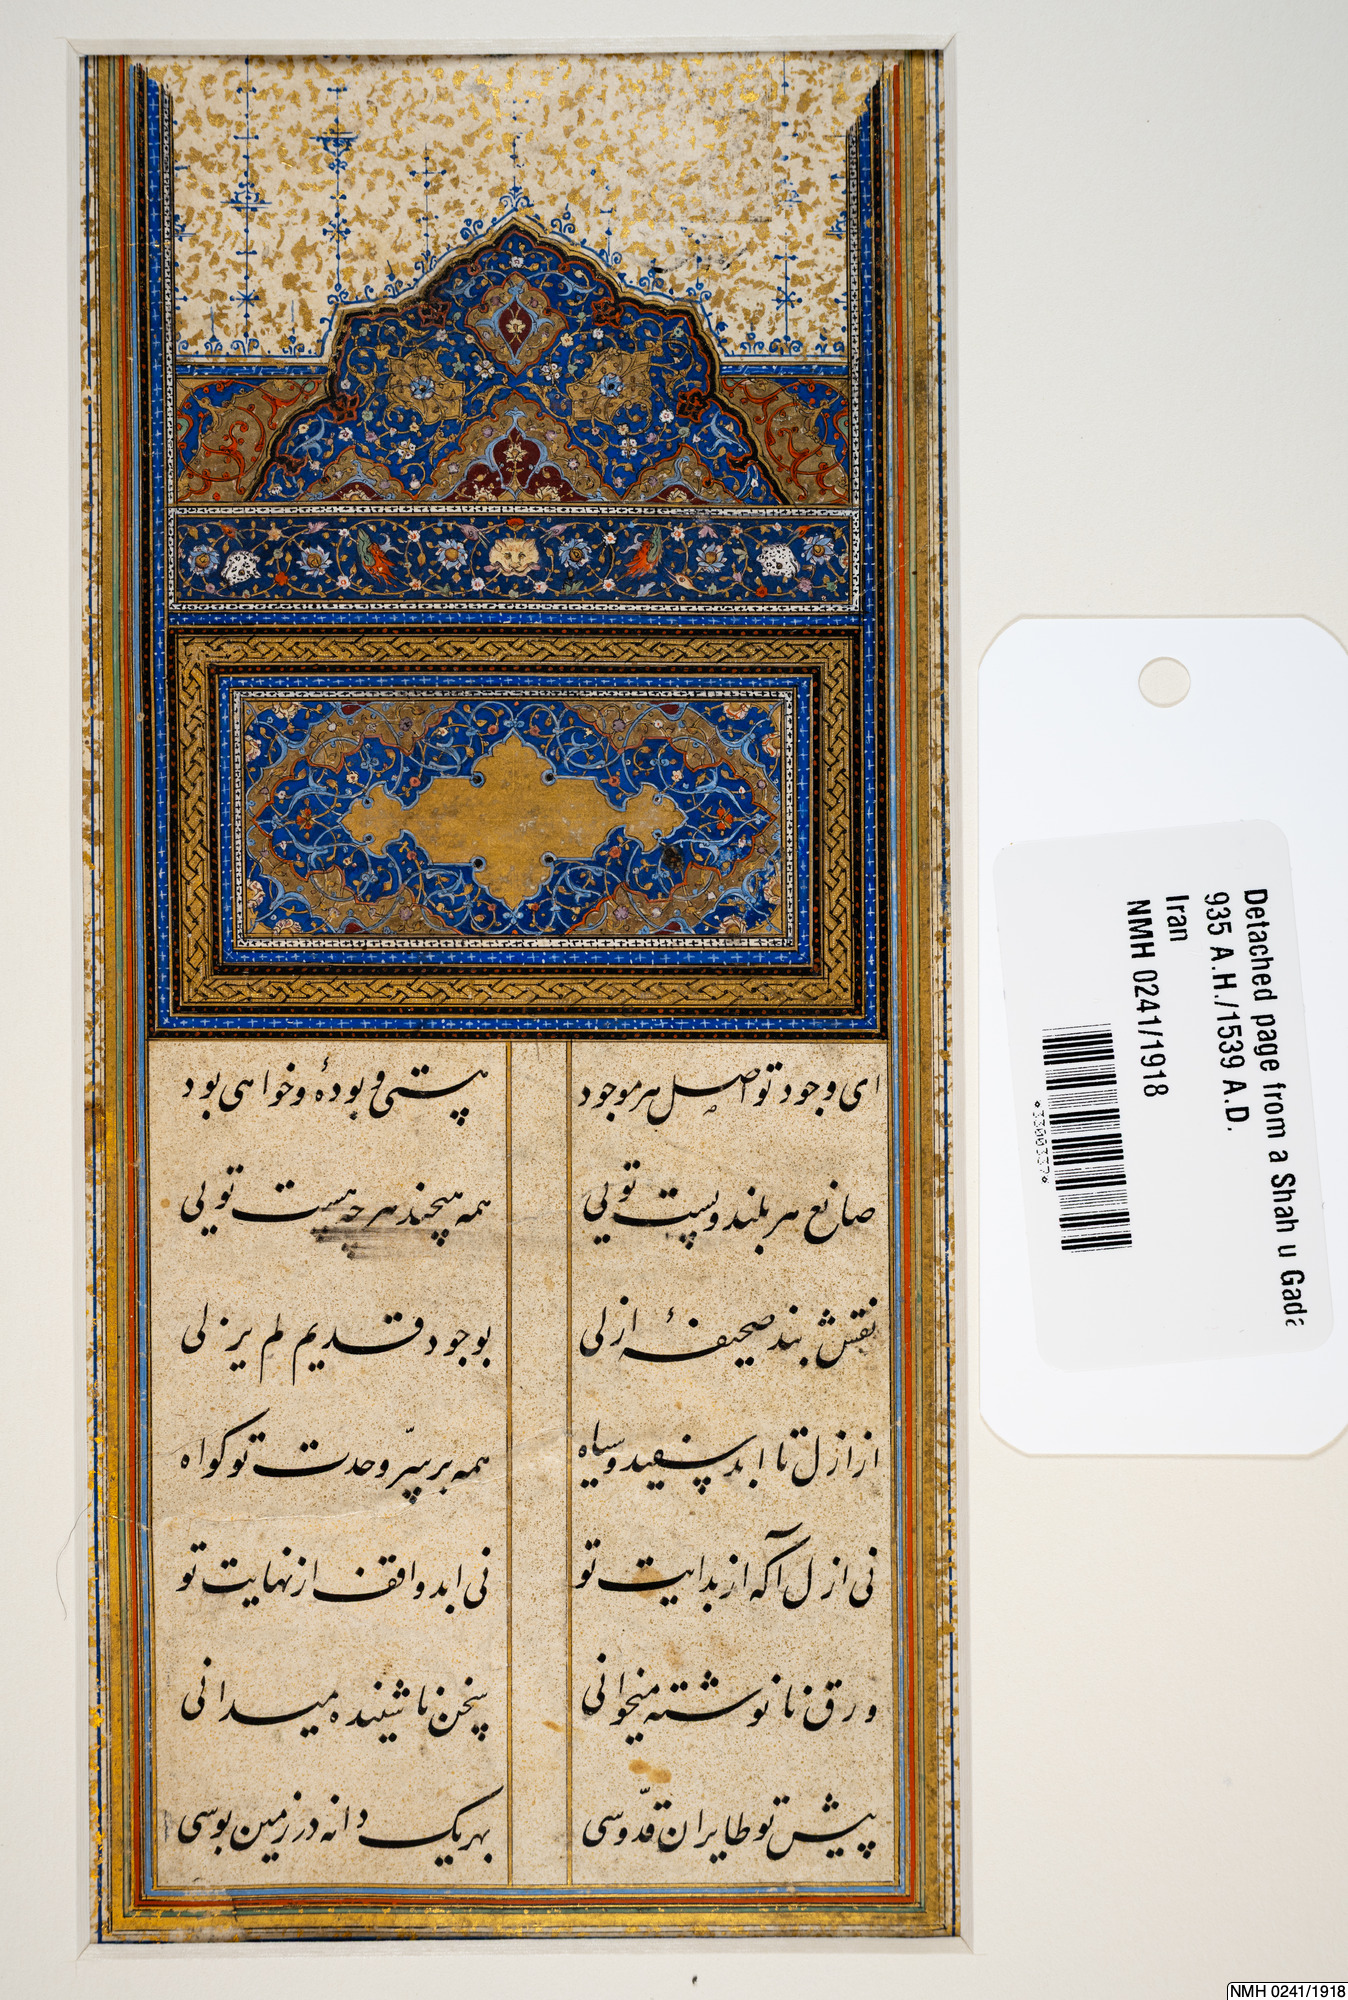 ای وجود تو اصل هر موجود
هستی و بودهٔ و خواهی بود
صانع هر بلند و پست تویی
همه هیچند هر چه هست تویی
نقش بند صحیفهٔ ازلی
بوجود قدیم لم یزلی
از ازل تا ابد سپید و سیاه
همه بر سرّ وحدت تو کواه
نی ازل آکه از بدایت تو
نی ابد واقف از نهایت تو
ورق نانوشته میخوانی
سخن ناشنیده میدانی
پیش تو طایران قدّوسی
بهر یک دانه در زمین بوسی
Detached page from a Shah u Gada
935 A.H./1539 A.D.
Iran
NMH 0241/1918
*3300337*
NMH 0241/1918